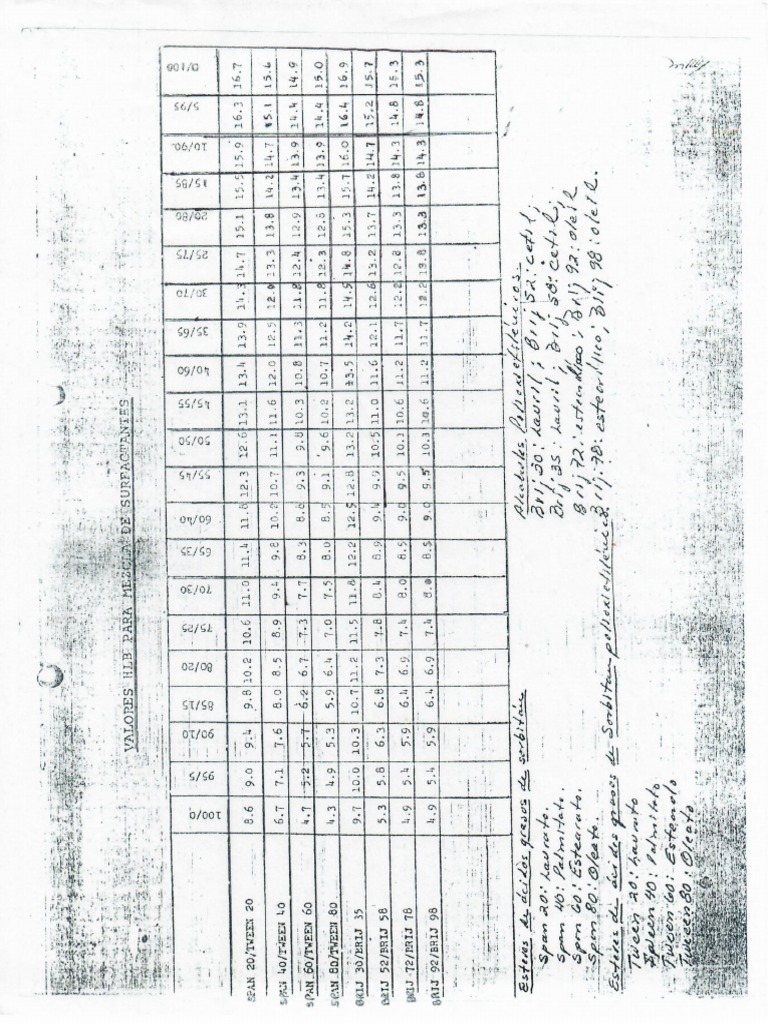 VALORES HLB PARA MEZCLA DE SURFACTANTES
100/0 95/5 90/10 85/15 80/20 75/25 70/30 65/35 60/40 55/45 50/50 45/55 40/60 35/65 30/70 25/75 20/80 15/85 10/90 5/95 0/100
SPAN 20/TWEEN 20 8.6 9.0 9.4 9.8 10.2 10.6 11.0 11.4 11.8 12.3 12.6 13.1 13.4 13.9 14.3 14.7 15.1 15.5 15.9 16.3 16.7
SPAN 40/TWEEN 40 6.7 7.1 7.6 8.0 8.5 8.9 9.4 9.8 10.2 10.7 11.1 11.6 12.0 12.5 12.9 13.3 13.8 14.2 14.7 15.1 15.6
SPAN 60/TWEEN 60 4.7 5.2 5.7 6.2 6.7 7.3 7.7 8.3 8.8 9.3 9.8 10.3 10.8 11.3 11.8 12.4 12.9 13.4 13.9 14.4 14.9
SPAN 80/TWEEN 80 4.3 4.9 5.3 5.9 6.4 7.0 7.5 8.0 8.5 9.1 9.6 10.2 10.7 11.2 11.8 12.3 12.8 13.4 13.9 14.4 15.0
BRIJ 30/BRIJ 35 9.7 10.0 10.3 10.7 11.2 11.5 11.8 12.2 12.5 12.8 13.2 13.2 13.5 14.2 14.5 14.8 15.3 15.7 16.0 16.4 16.9
BRIJ 52/BRIJ 58 5.3 5.8 6.3 6.8 7.3 7.8 8.4 8.9 9.4 9.9 10.5 11.0 11.6 12.1 12.6 13.2 13.7 14.2 14.7 15.2 15.7
BRIJ 72/BRIJ 78 4.9 5.4 5.9 6.4 6.9 7.4 8.0 8.5 9.0 9.5 10.1 10.6 11.2 11.7 12.2 12.8 13.3 13.8 14.3 14.8 15.3
BRIJ 92/BRIJ 98 4.9 5.4 5.9 6.4 6.9 7.4 8.0 8.5 9.0 9.5 10.3 10.6 11.2 11.7 12.2 13.3 13.8 14.3 14.8 15.3
Esteres de ácidos grasos de sorbitán
Span 20: Laurato.
Span 40: Palmitato.
Span 60: Estearato.
Span 80: Oleato.
Esteres de ácidos grasos de Sorbitan polioxietilénicos.
Tween 20: Laurato
Tween 40: Palmitato
Tween 60: Estearato
Tween 80: Oleato
Alcoholes Polioxietilénicos.
Brij 30: Lauril; Brij 52: cetil;
Brij 35: Lauril; Brij 58: cetil;
Brij 72: Brij 92: oleil
Brij 78: estearilico; Brij 98: oleil.